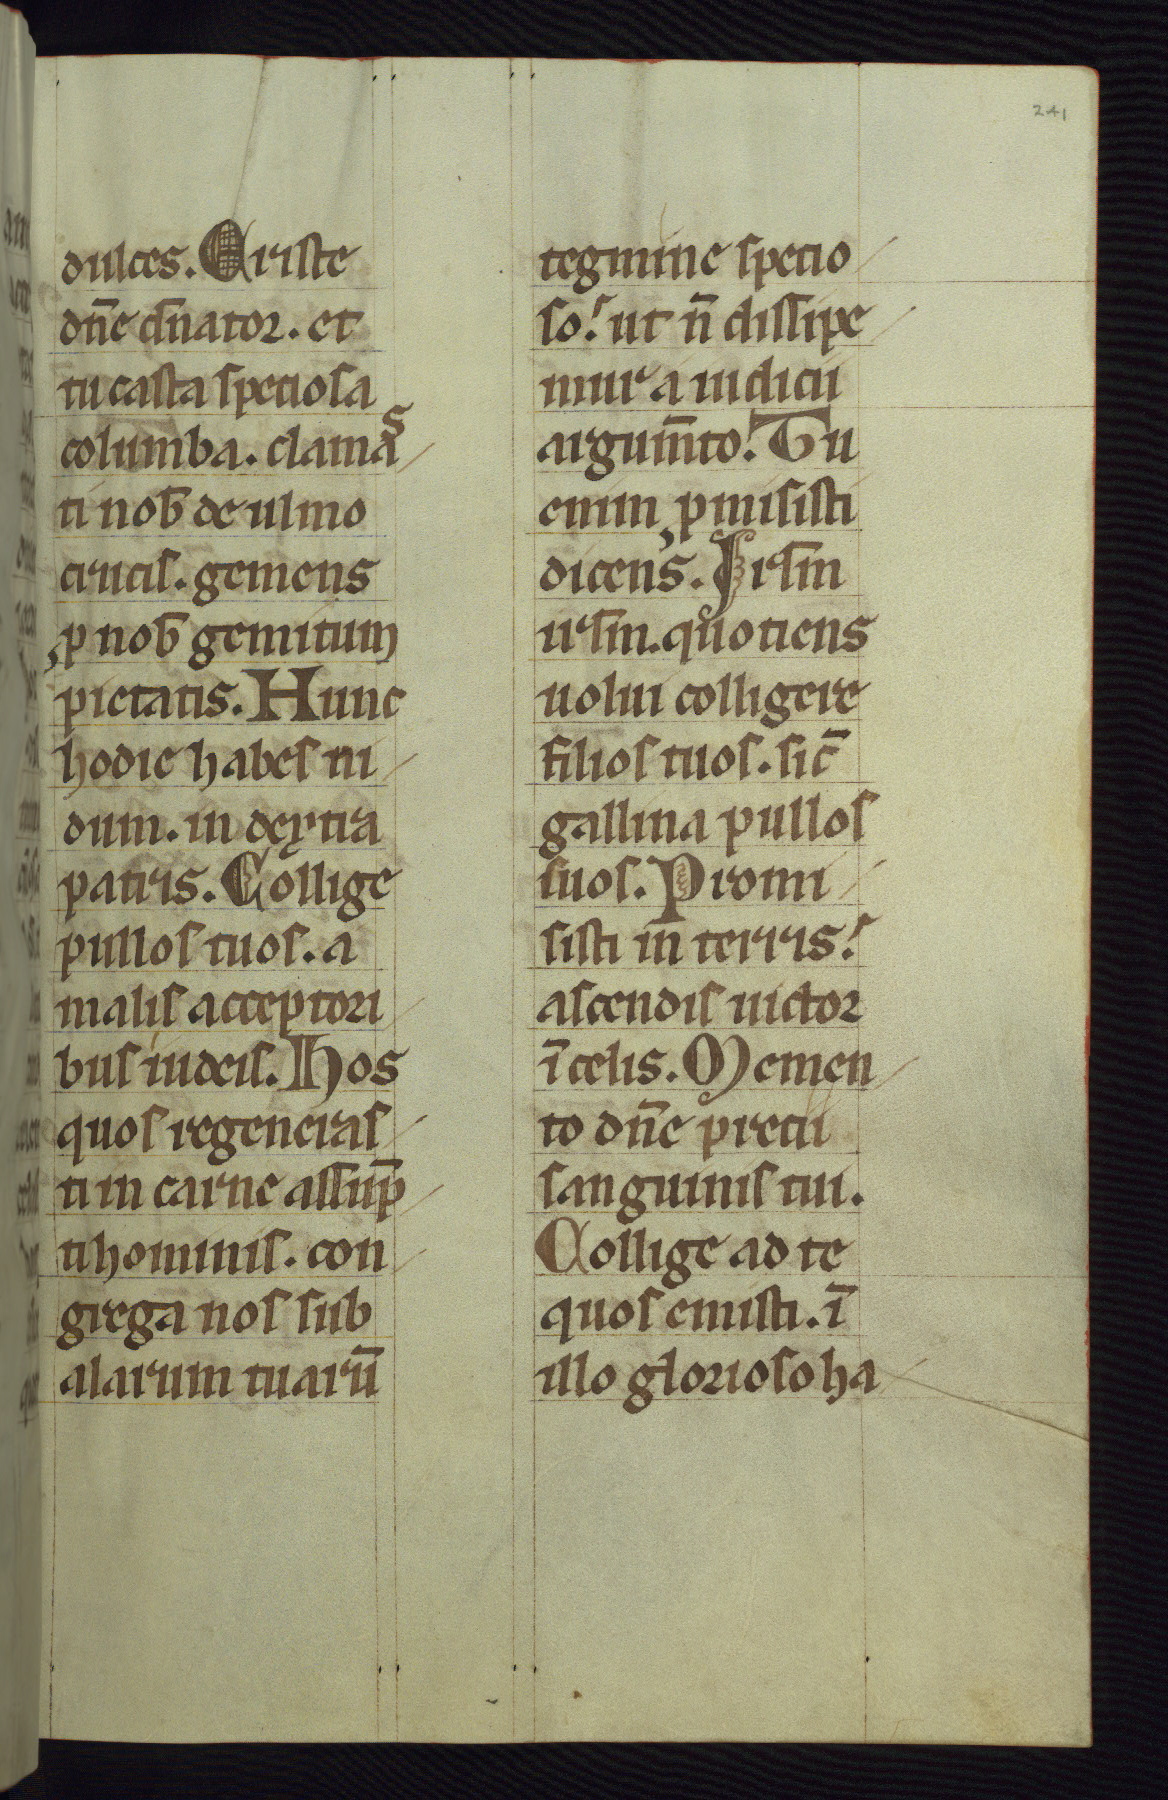 241
dulces. Criste
dn̄e dn̄ator. et
tu casta speciosa
columba. clamas
ti nob̄ de ulmo
crucis. gemens
ꝓ nob̄ gemitum
pietatis. Hunc
hodie habes ni
dum. in dextra
patris. Collige
pullos tuos. a
malis acceptori
bus iudeis. Hos
quos regeneras
ti in carne assūp
ti hominis. con
grega nos sub
alarum tuarū
tegmine specio
so. ut n̄ dissipe
mur a iudicii
argum̄to. Tu
enim ꝓmisisti
dicens. Irl̄m
irl̄m. quotiens
uolui colligere
filios tuos. sic̄
gallina pullos
suos. Promi
sisti in terris.
ascendis uictor
ī celis. Memen
to dn̄e precii
sanguinis tui.
Collige ad te
quos emisti. ī
illo glorioso ha